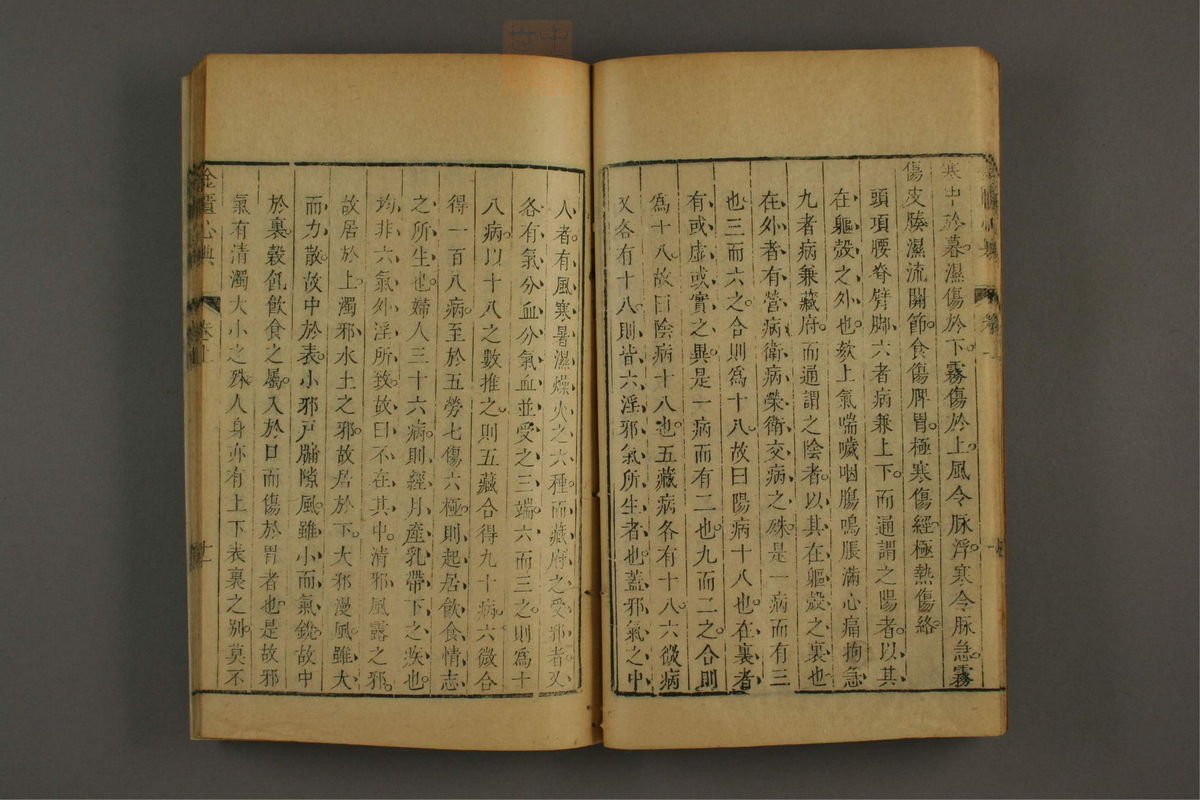 寒中於暮。濕傷於下。霧傷於上。風令脉浮。寒令脉急。霧
傷皮腠。濕流關節。食傷脾胃。極寒傷經。極熱傷絡。
頭項腰脊臂脚六者病兼上下。而通謂之陽者。以其
在軀殼之外也。欬上氣喘噦咽腸鳴脹滿心痛拘急
九者病兼藏府。而通謂之陰者。以其在軀殼之裏也
在外者有營病衛病榮衛交病之殊。是一病而有三
也。三而六之。合則爲十八。故曰陽病十八也。在裏者
有或虛或實之異。是一病而有二也。九而二之。合則
爲十八。故曰陰病十八也。五藏病各有十八。六微病
又各有十八。則皆六淫邪氣所生者也。蓋邪氣之中
人者。有風寒暑濕燥火之六種。而藏府之受邪者。又
各有氣分血分氣血並受之三端。六而三之。則爲十
八病。以十八之數推之。則五藏合得九十病。六微合
得一百八病。至於五勞七傷六極。則起居飲食情志
之所生也。婦人三十六病。則經月產乳帶下之疾也。
均非六氣外淫所致。故曰不在其中。清邪風露之邪。
故居於上。濁邪水土之邪。故居於下。大邪漫風。雖大
而力散。故中於表。小邪戸牖隙風。雖小而氣銳。故中
於裏。穀飥飲食之屬。入於口而傷於胃者也。是故邪
氣有清濁大小之殊。人身亦有上下表裏之別。莫不
金匱心典
卷上
十一